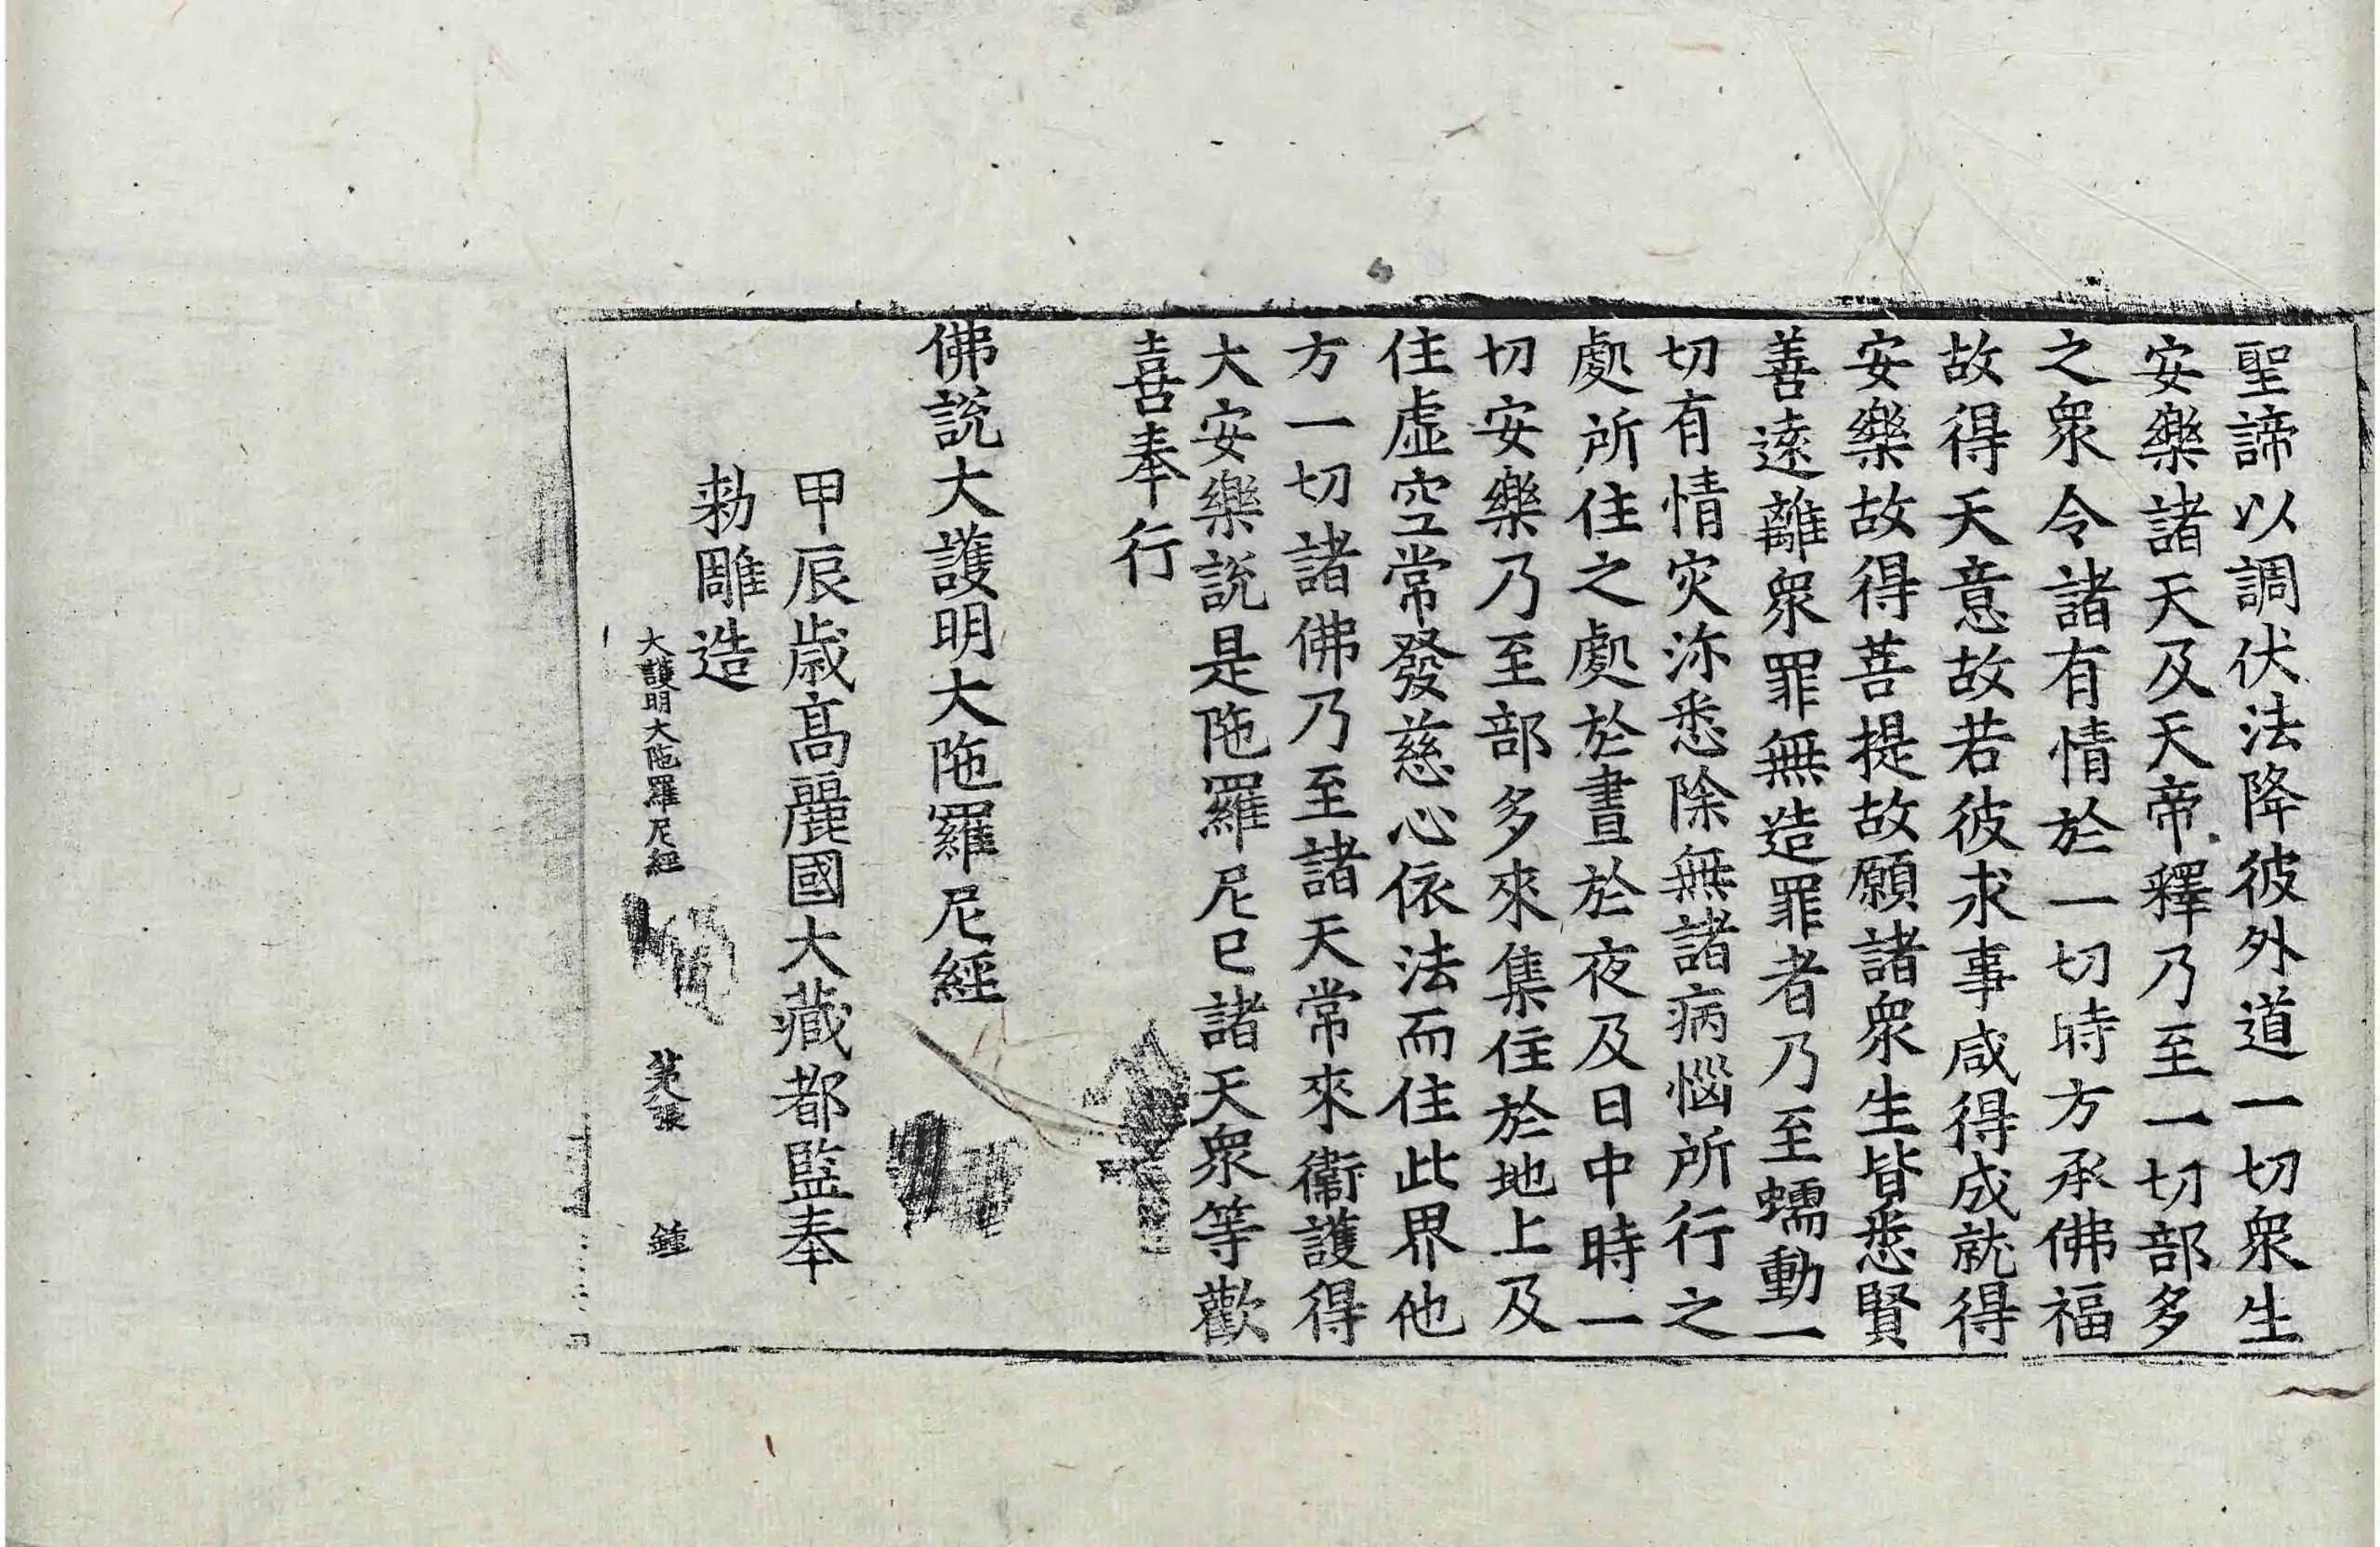 聖諦以調伏法降彼外道一切衆生
安樂諸天及天帝釋乃至一切部多
之衆令諸有情於一切時方承佛福
故得天意故若彼求事咸得成就得
安樂故得菩提故願諸衆生皆悉賢
善遠離衆罪無造罪者乃至蠕動一
切有情灾沵悉除無諸病惱所行之
處所住之處於晝於夜及日中時一
切安樂乃至部多來集住於地上及
住虛空常發慈心依法而住此界他
方一切諸佛乃至諸天常來衞護得
大安樂說是陁羅尼已諸天衆等歡
喜奉行
佛說大護明大陁羅尼經
甲辰歲高麗國大藏都監奉
勑雕造
大護明大陁羅尼經 第八張 鍾